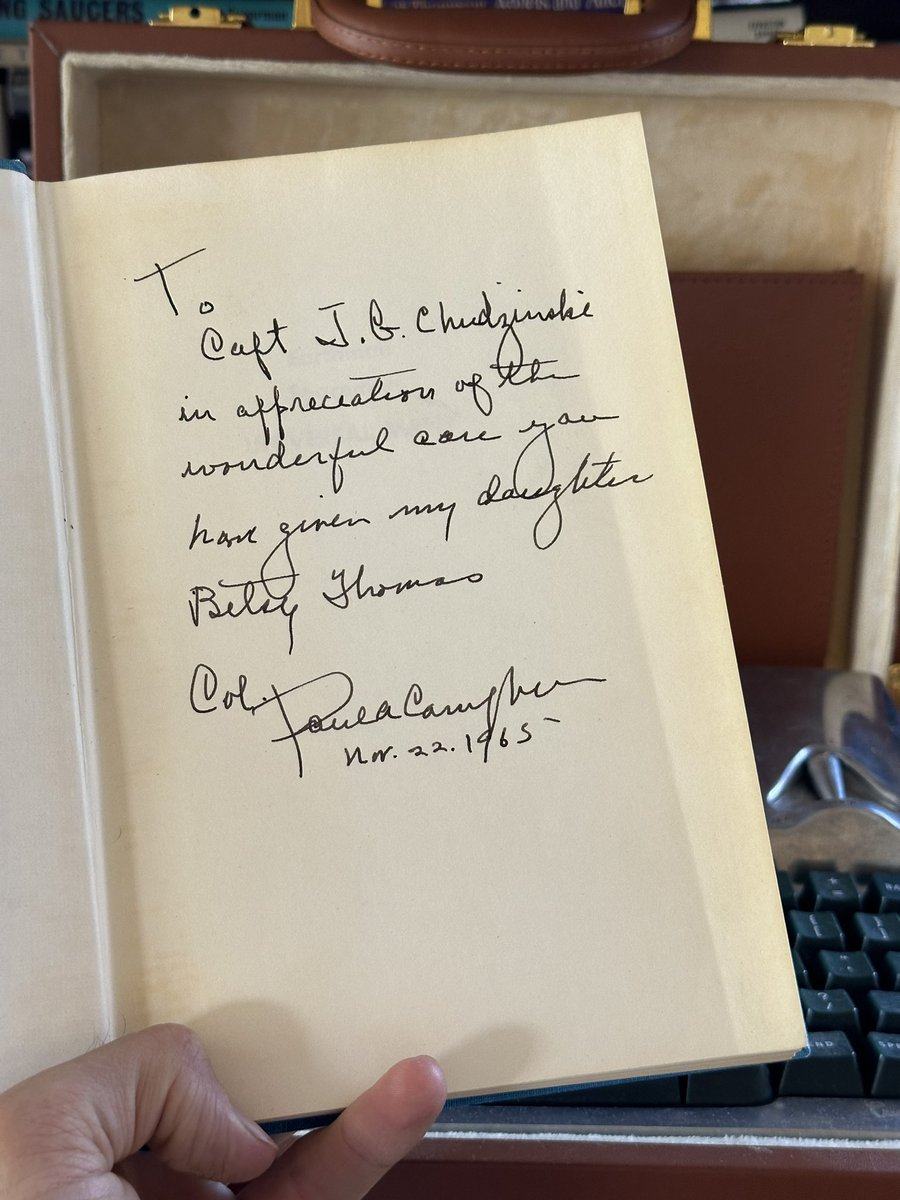 NG SAUCERS
To
Capt J. G. Chudzinski
in appreciation of the
wonderful care you
have given my daughter
Betsy Thomas
Col.
Nov. 22. 1965